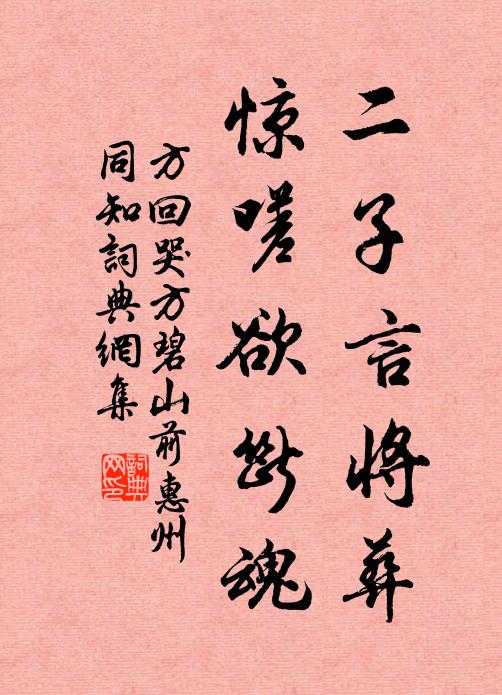 二子言将葬
惊嗟欲断魂
方回哭方碧山前惠州
同知詞典網集
詞典
网印